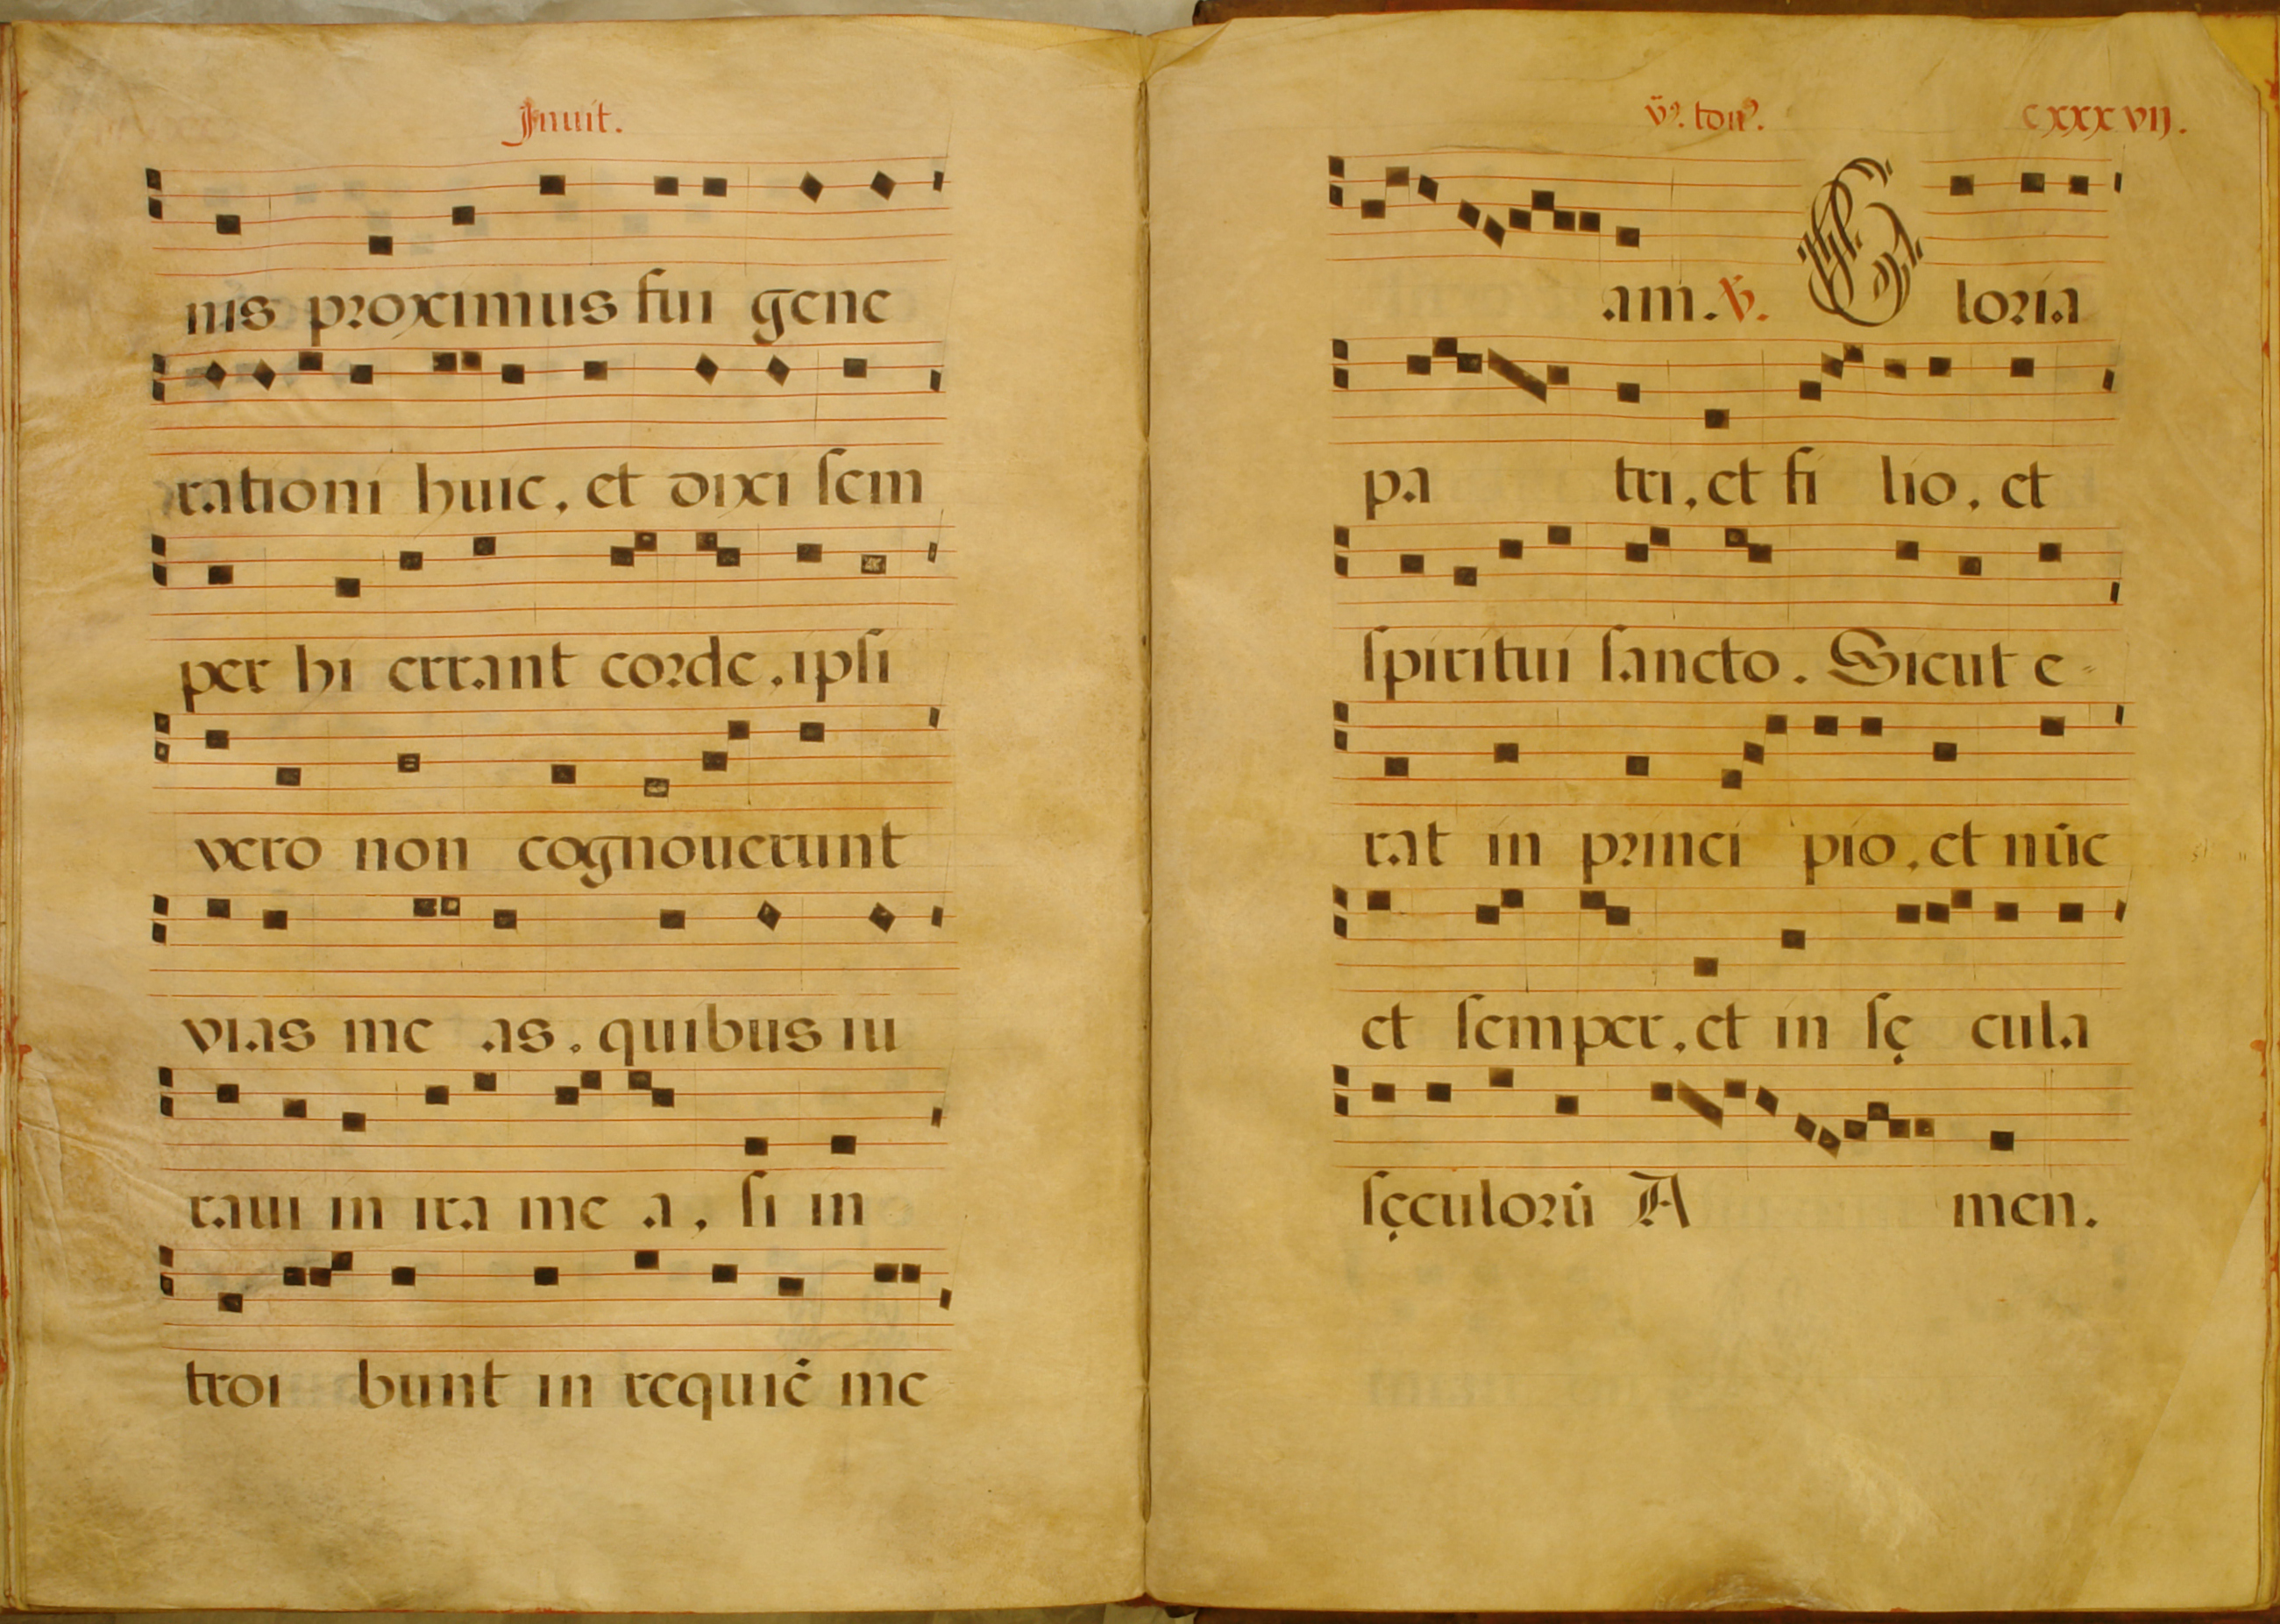 Inuit.
nis proximus fui gene
rationi huic, et dixi sem
per hi errant corde, ipsi
vero non cognouerunt
vias me as. quibus iu
raui in ira me a, si in
troi bunt in requiē me
vꝰ. tonꝰ. cxxxvij.
am. ℣. Gloria
pa tri, et fi lio, et
spiritui sancto. Sicut e-
rat in princi pio, et nūc
et semper, et in sę cula
sęculorū A men.